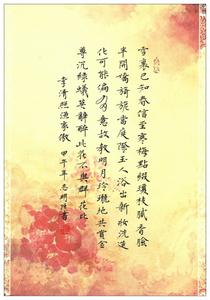 雪裏已知春信至寒梅點綴瓊枝膩香臉
半開嬌旖旎當庭際玉人浴出新妝洗造
化可能偏有意故教明月玲瓏地共賞金
尊沉綠蟻莫辭醉此花不與群花比
李清照漁家傲 甲午年